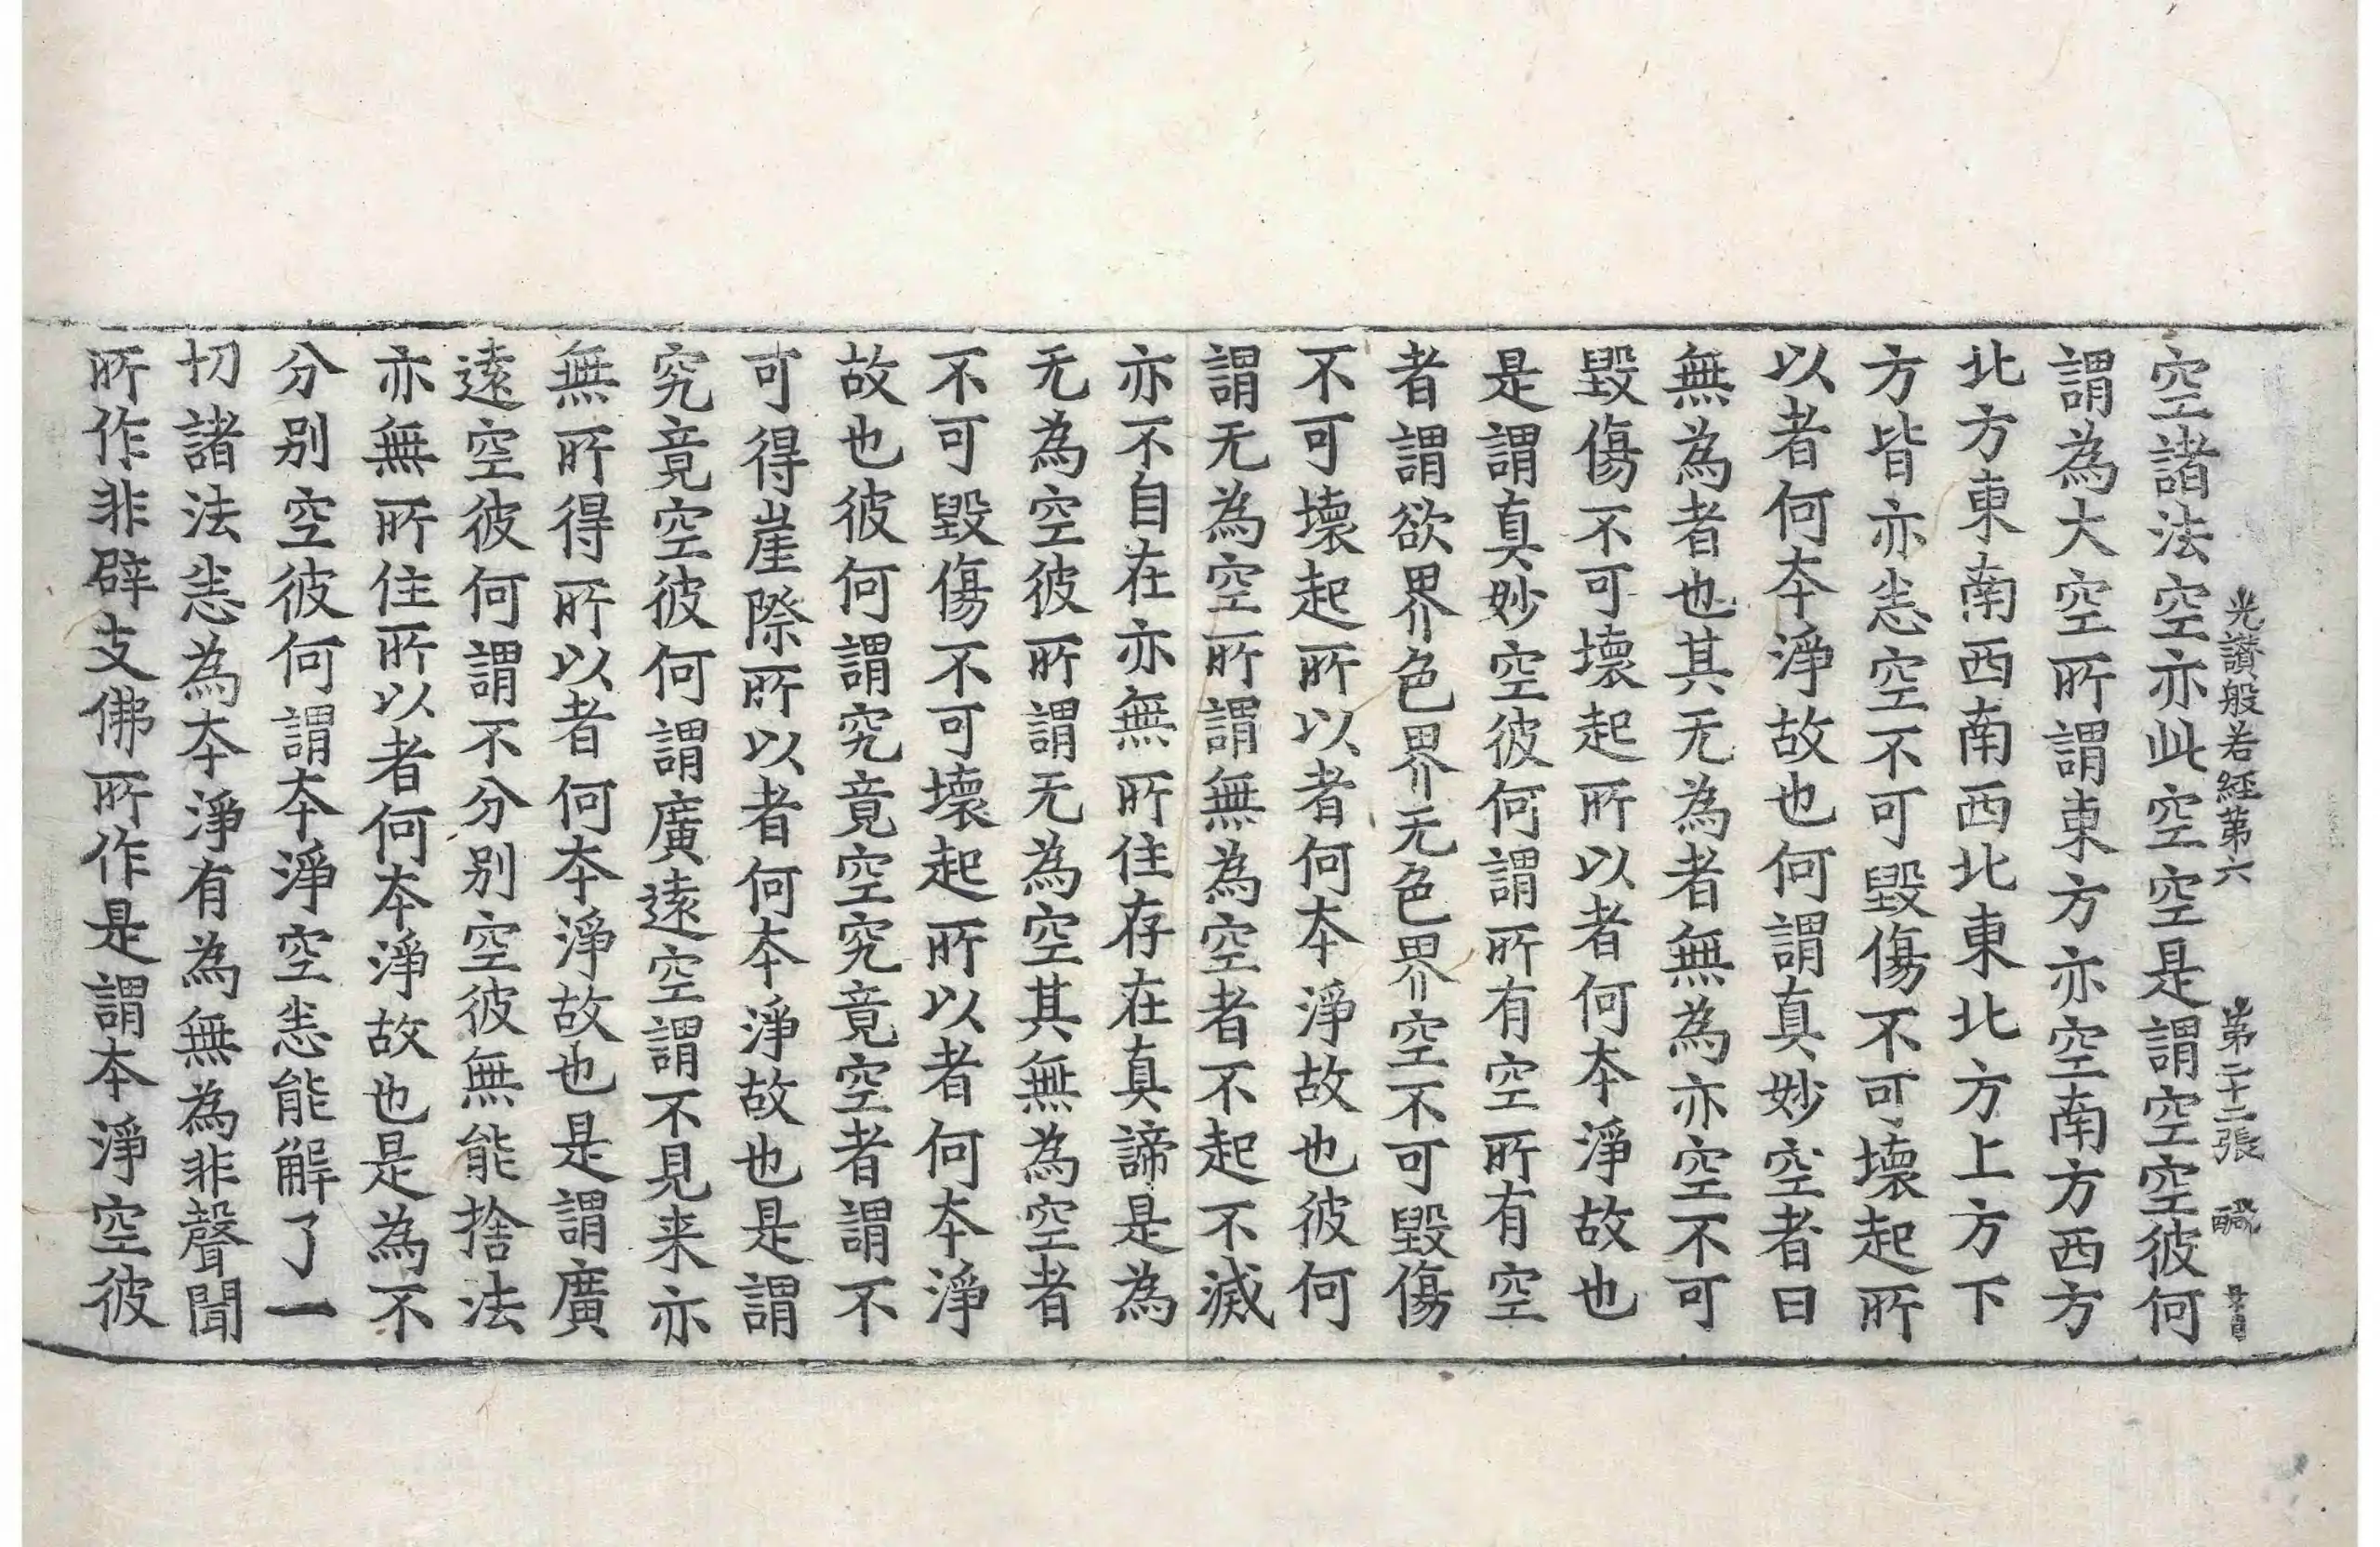 光讃般若經第六 第二十二張 醎
空諸法空亦此空空是謂空空彼何
謂為大空所謂東方亦空南方西方
北方東南西南西北東北方上方下
方皆亦悉空不可毀傷不可壞起所
以者何本淨故也何謂真妙空者曰
無為者也其无為者無為亦空不可
毀傷不可壞起所以者何本淨故也
是謂真妙空彼何謂所有空所有空
者謂欲界色界无色界空不可毀傷
不可壞起所以者何本淨故也彼何
謂无為空所謂無為空者不起不滅
亦不自在亦無所住存在真諦是為
无為空彼所謂无為空其無為空者
不可毀傷不可壞起所以者何本淨
故也彼何謂究竟空究竟空者謂不
可得崖際所以者何本淨故也是謂
究竟空彼何謂廣遠空謂不見来亦
無所得所以者何本淨故也是謂廣
遠空彼何謂不分別空彼無能捨法
亦無所住所以者何本淨故也是為不
分別空彼何謂本淨空悉能解了一
切諸法悉為本淨有為無為非聲聞
所作非辟支佛所作是謂本淨空彼